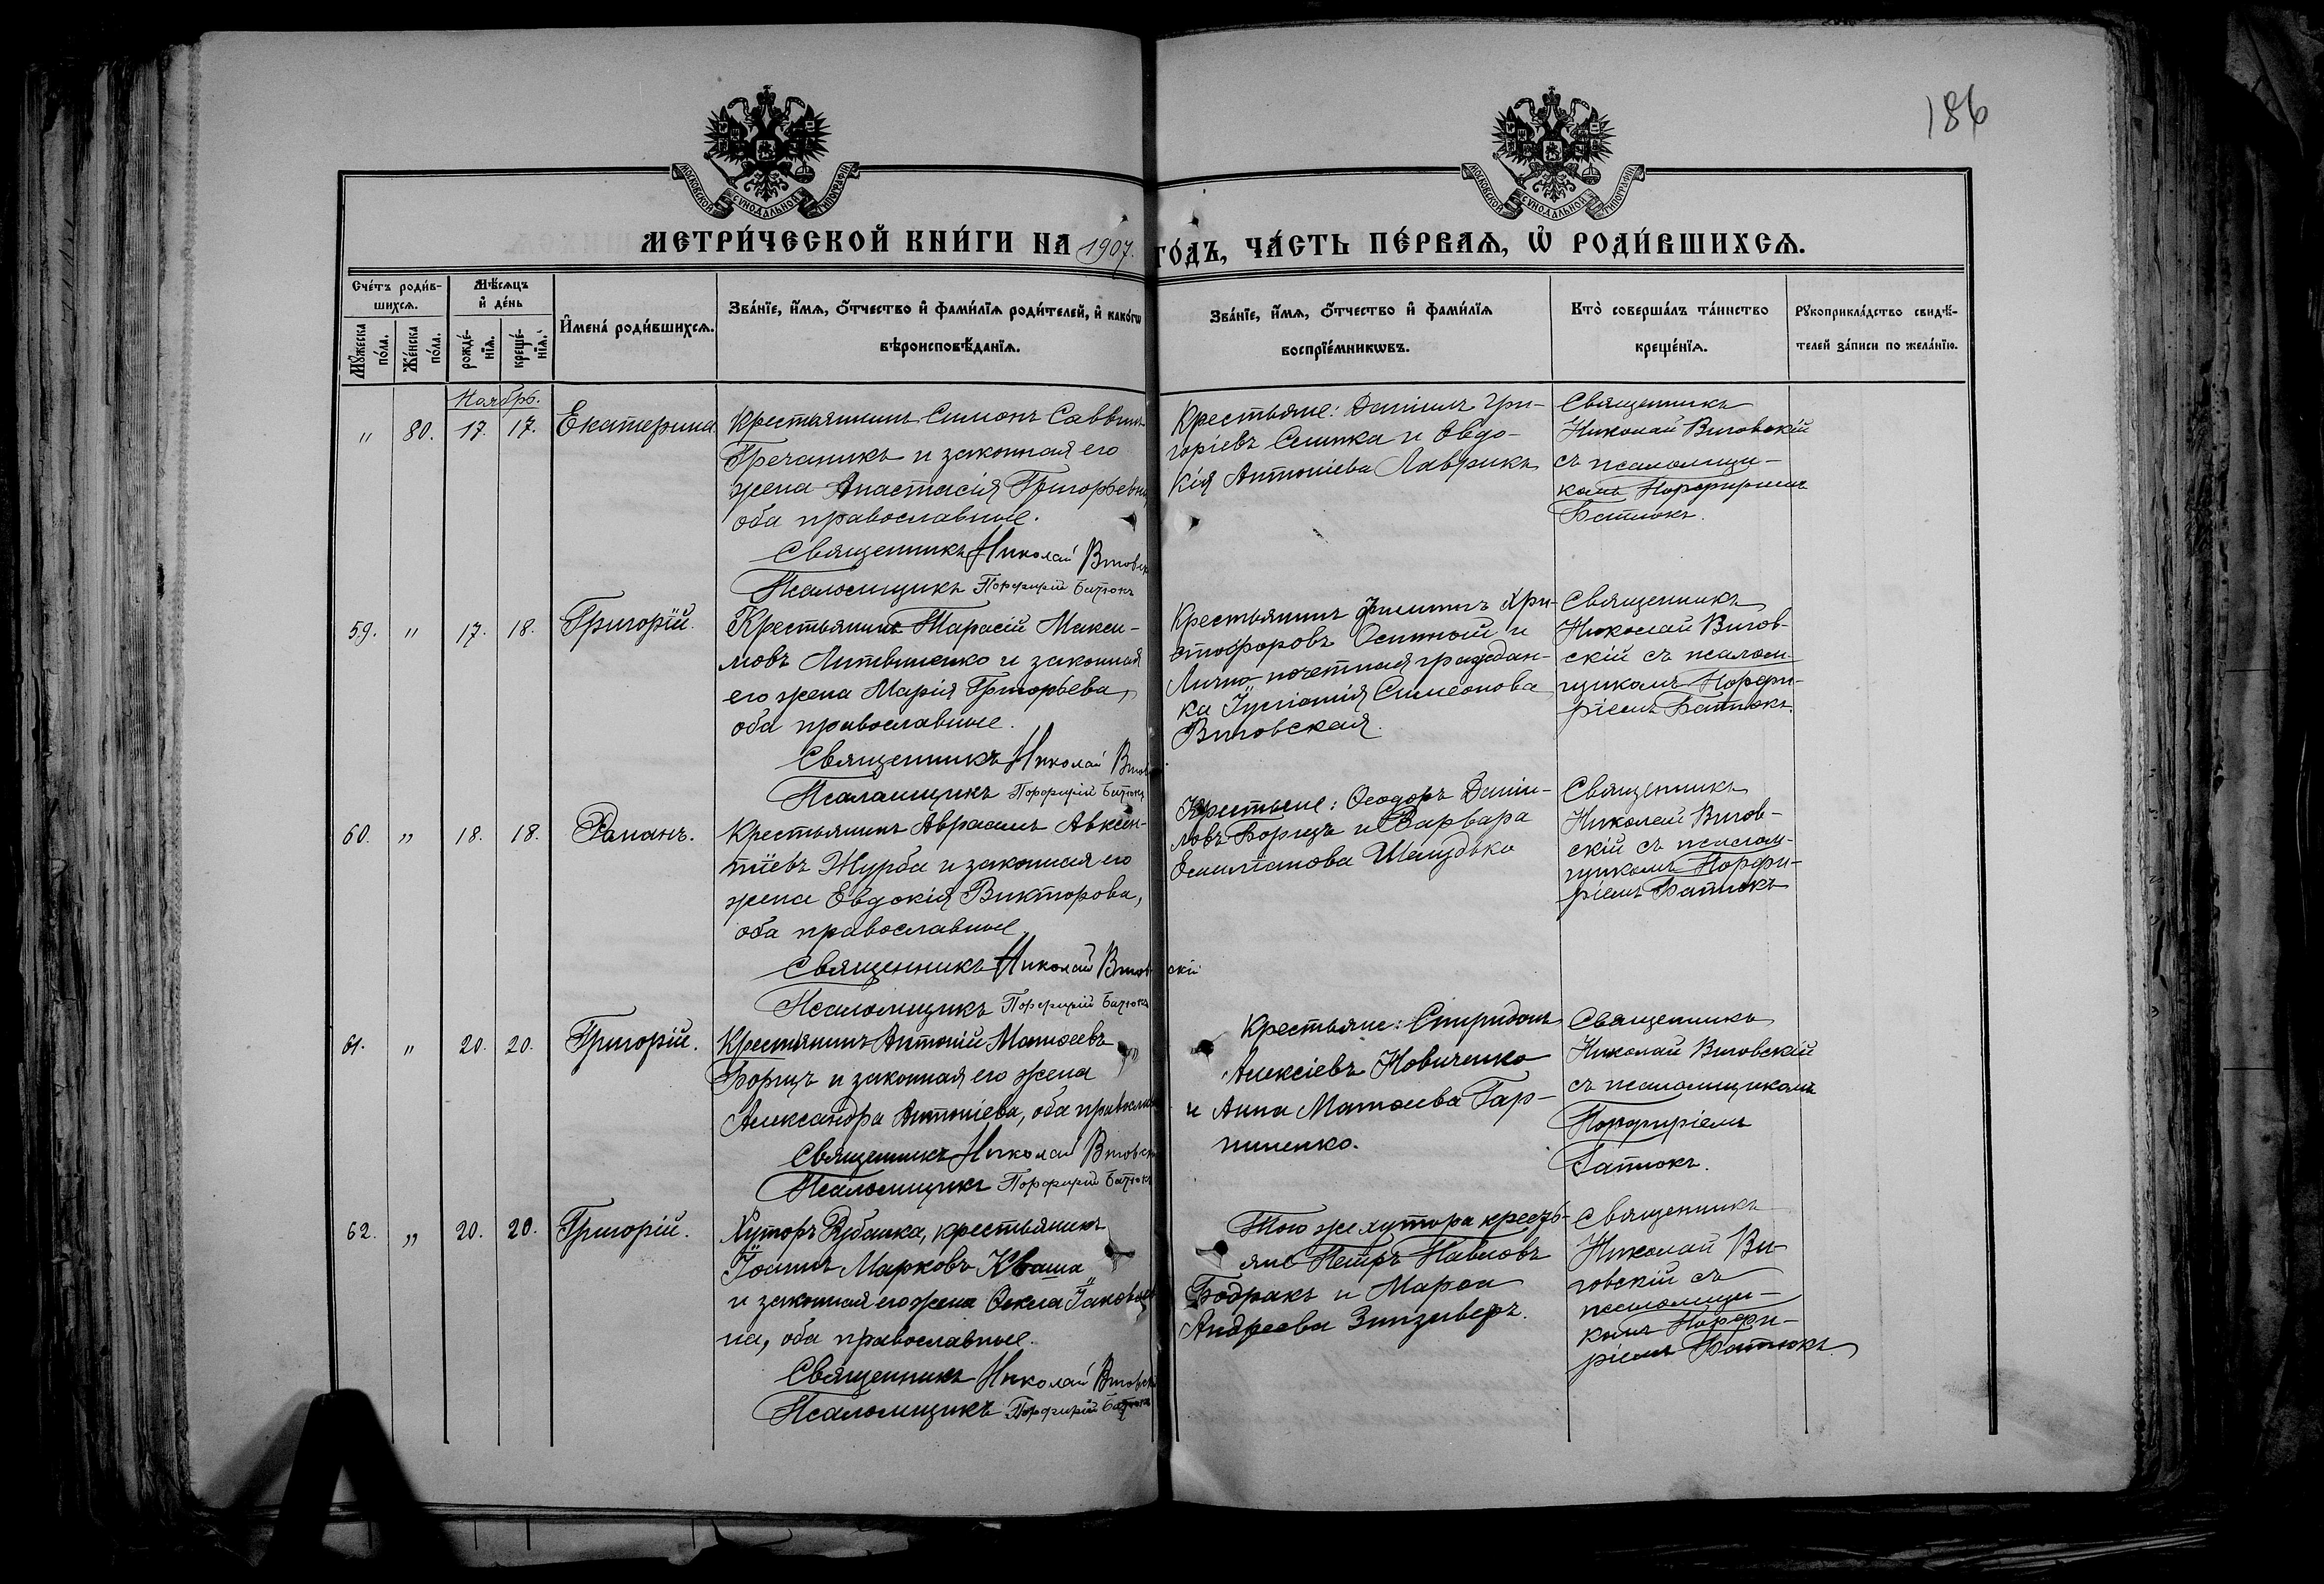 186
МОСКОВСКОЙ СУНОДАЛЬНОЙ ТИПОГРАФІИ
МОСКОВСКОЙ СУНОДАЛЬНОЙ ТИПОГРАФІИ
МЕТРИ́ЧЕСКОЙ КНИ́ГИ НА 1907. ГО́ДЪ, ЧА́СТЬ ПЕ́РВАѦ, Ѡ҆ РОДИ́ВШИХСѦ.
Сче́тъ роди́в-
шихсѧ.
Мꙋ́жеска по́ла.
Же́нска по́ла.
Мѣ́сѧцъ
и҆ де́нь
рожде́-
нїѧ.
креще́-
нїѧ.
И҆мена̀ роди́вшихсѧ.
Зва́нїе, и҆́мѧ, ѻ҆́тчество и҆ фами́лїѧ роди́телей, и҆ како́гѡ
вѣроисповѣ́данїѧ.
Зва́нїе, и҆́мѧ, ѻ҆́тчество и҆ фами́лїѧ
воспрїе́мникѡвъ.
Кто̀ соверша́лъ та́инство
креще́нїѧ.
Рꙋкоприкла́дство свидѣ́-
телей за́писи по жела́нїю.
Ноябрь.
" 80. 17. 17. Екатерина
Крестьянинъ Симонъ Саввинъ
Гречаникъ и законная его
жена Анастасія Григорьевна
оба православные.
Священникъ Николай
Псаломщикъ Порфирій Батюкъ
Крестьяне: Даніилъ Гри-
горіевъ и Овдо-
кія Антоніева Лаврикъ
Священникъ
Николай Виговскій
съ псаломщи-
комъ Порфиріемъ
Батюкъ.
59. " 17. 18. Григорій.
Крестьянинъ Тарасій Макси-
мовъ Литвиненко и законная
его жена Марія Григорьева,
оба православные.
Священникъ Николай
Псаломщикъ Порфирій Батюкъ
Крестьянинъ Филиппъ Хри-
стофоровъ и
Лично-почетная граждан-
ка Симеонова
Виговская.
Священникъ
Николай Вигов-
скій съ псалом-
щикомъ Порфи-
ріемъ Батюкъ.
60. " 18. 18. Романъ.
Крестьянинъ Авраамъ Авксен-
тіевъ Журба и законная его
жена Евдокія Викторова,
оба православные
Священникъ Николай Виговскій
Псаломщикъ Порфирій Батюкъ
Крестьяне: Ѳеодоръ Даніи-
ловъ Борщъ и Варвара
Емиліанова Шелудько
Священникъ
Николай Вигов-
скій съ псалом-
щикомъ Порфи-
ріемъ Батюкъ
61. " 20. 20. Григорій.
Крестьянинъ Антоній Матѳеевъ
Борщъ и законная его жена
Александра Антоніева, оба православ
Священникъ Николай
Псаломщикъ Порфирій Батюкъ
Крестьяне: Спиридонъ
Алексіевъ Новиченко
и Анна Матѳеева Гар-
пиненко.
Священникъ
Николай Виговскій
съ псаломщикомъ
Порфиріемъ
Батюкъ.
62. " 20. 20. Григорій.
Хуторъ Рубанка, крестьянинъ
Іоаннъ Марковъ Кваша
и законная его жена Ѳекла Іаковлев
на, оба православные.
Священникъ Николай
Псаломщикъ Порфирій Батюкъ
Того же хутора крестъ-
яне Петръ Павловъ
Бодракъ и Марѳа
Андреева Зинзиверъ.
Священникъ
Николай Ви-
говскій съ
псаломщи-
комъ Порфи-
ріемъ Батюкъ.